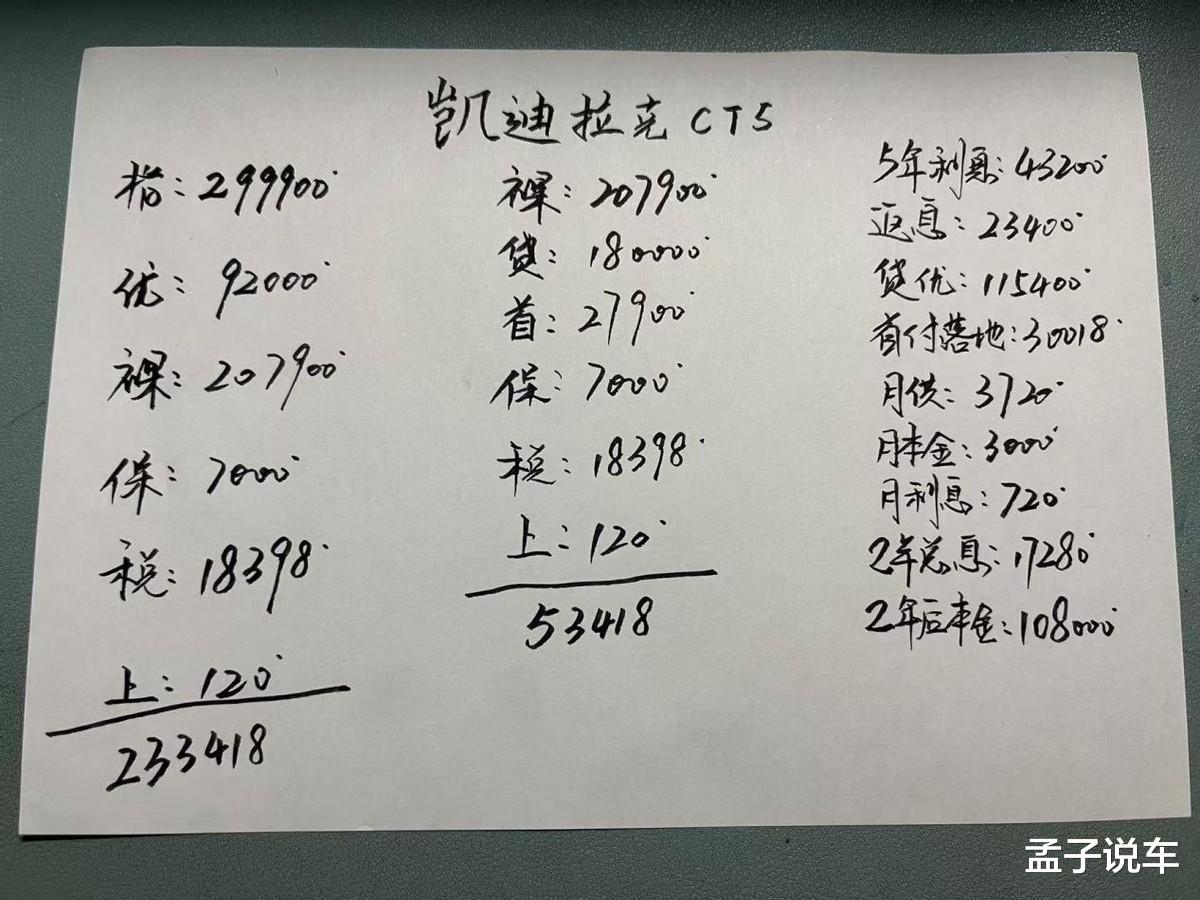 凯迪拉克 CT5
指: 299900
优: 92000
裸: 207900
保: 7000
税: 18398
上: 120
233418
裸: 207900
贷: 180000
首: 27900
保: 7000
税: 18398
上: 120
53418
5年利息: 43200
返息: 23400
贷优: 115400
首付落地: 30018
月供: 3720
月本金: 3000
月利息: 720
2年总息: 17280
2年后本金: 108000
孟子说车